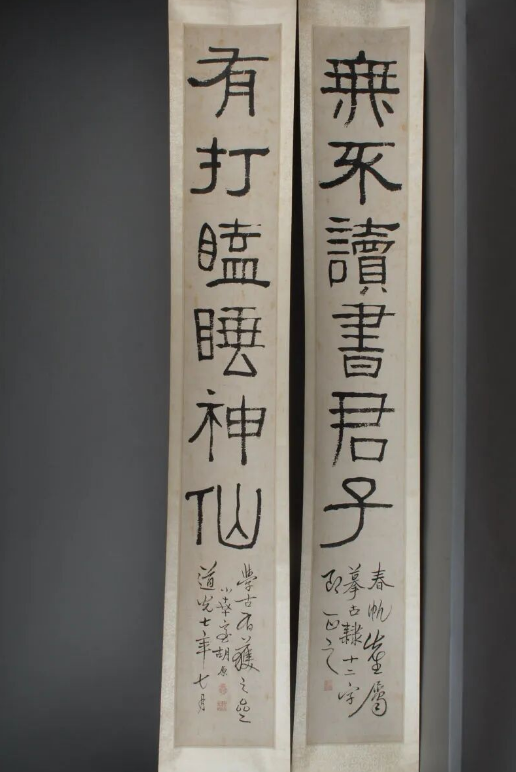 無不讀書君子
春帆先生屬
摹古隸十二字
即正之
有打瞌睡神仙
學古有獲之齋
胡原
道光七年七月